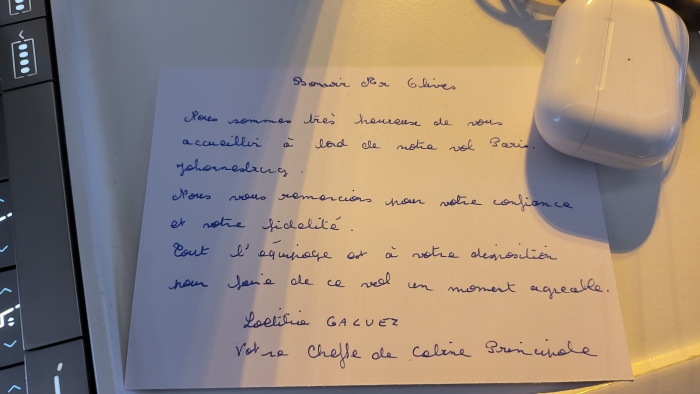 Bonsoir Mr Olives
Nous sommes très heureux de vous
accueillir à bord de notre vol Paris.
Johannesburg.
Nous vous remercions pour votre confiance
et votre fidelité.
Tout l'équipage est à votre disposition
pour faire de ce vol un moment agreable.
Laetitia GALVEZ
Votre Cheffe de Cabine Principale